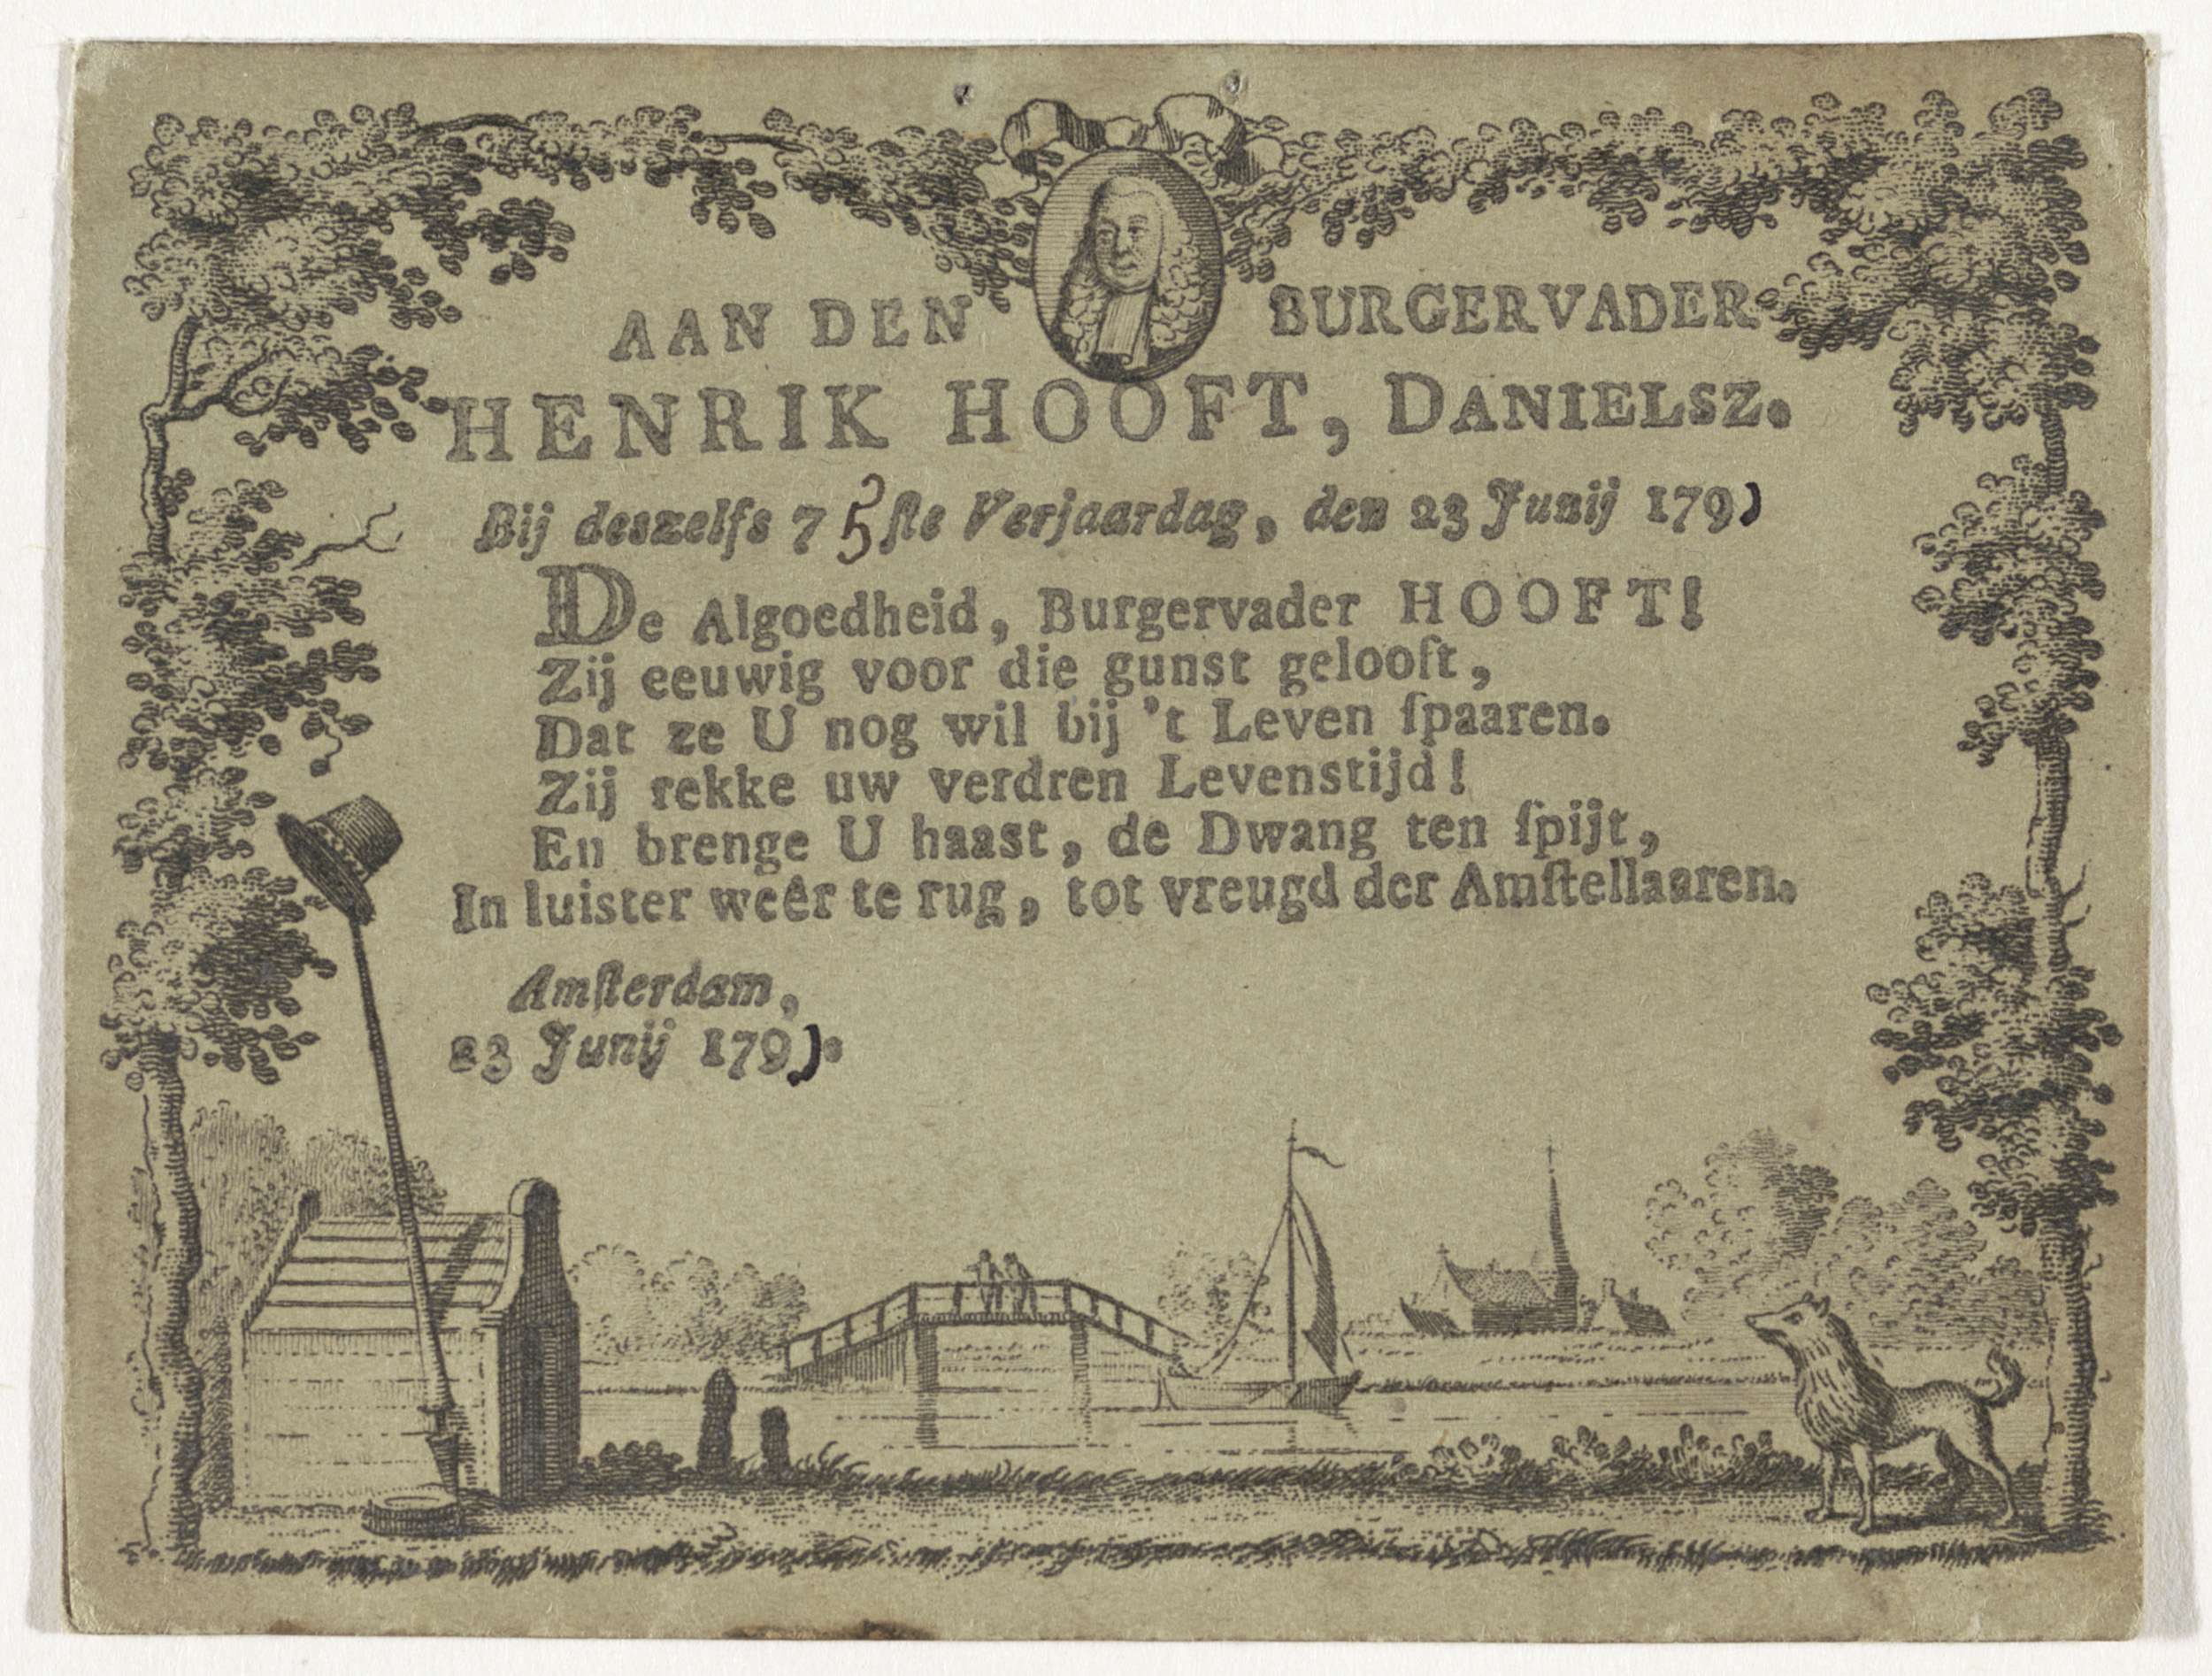 AAN DEN BURGERVADER
HENRIK HOOFT, DANIELSZ.
Bij deszelfs 75ſte Verjaardag, den 23 Junij 1791
De Algoedheid, Burgervader HOOFT!
Zij eeuwig voor die gunst gelooft,
Dat ze U nog wil bij 't Leven ſpaaren.
Zij rekke uw verdren Levenstijd!
En brenge U haast, de Dwang ten ſpijt,
In luister weêr te rug, tot vreugd der Amſtellaaren.
Amſterdam,
23 Junij 1791.